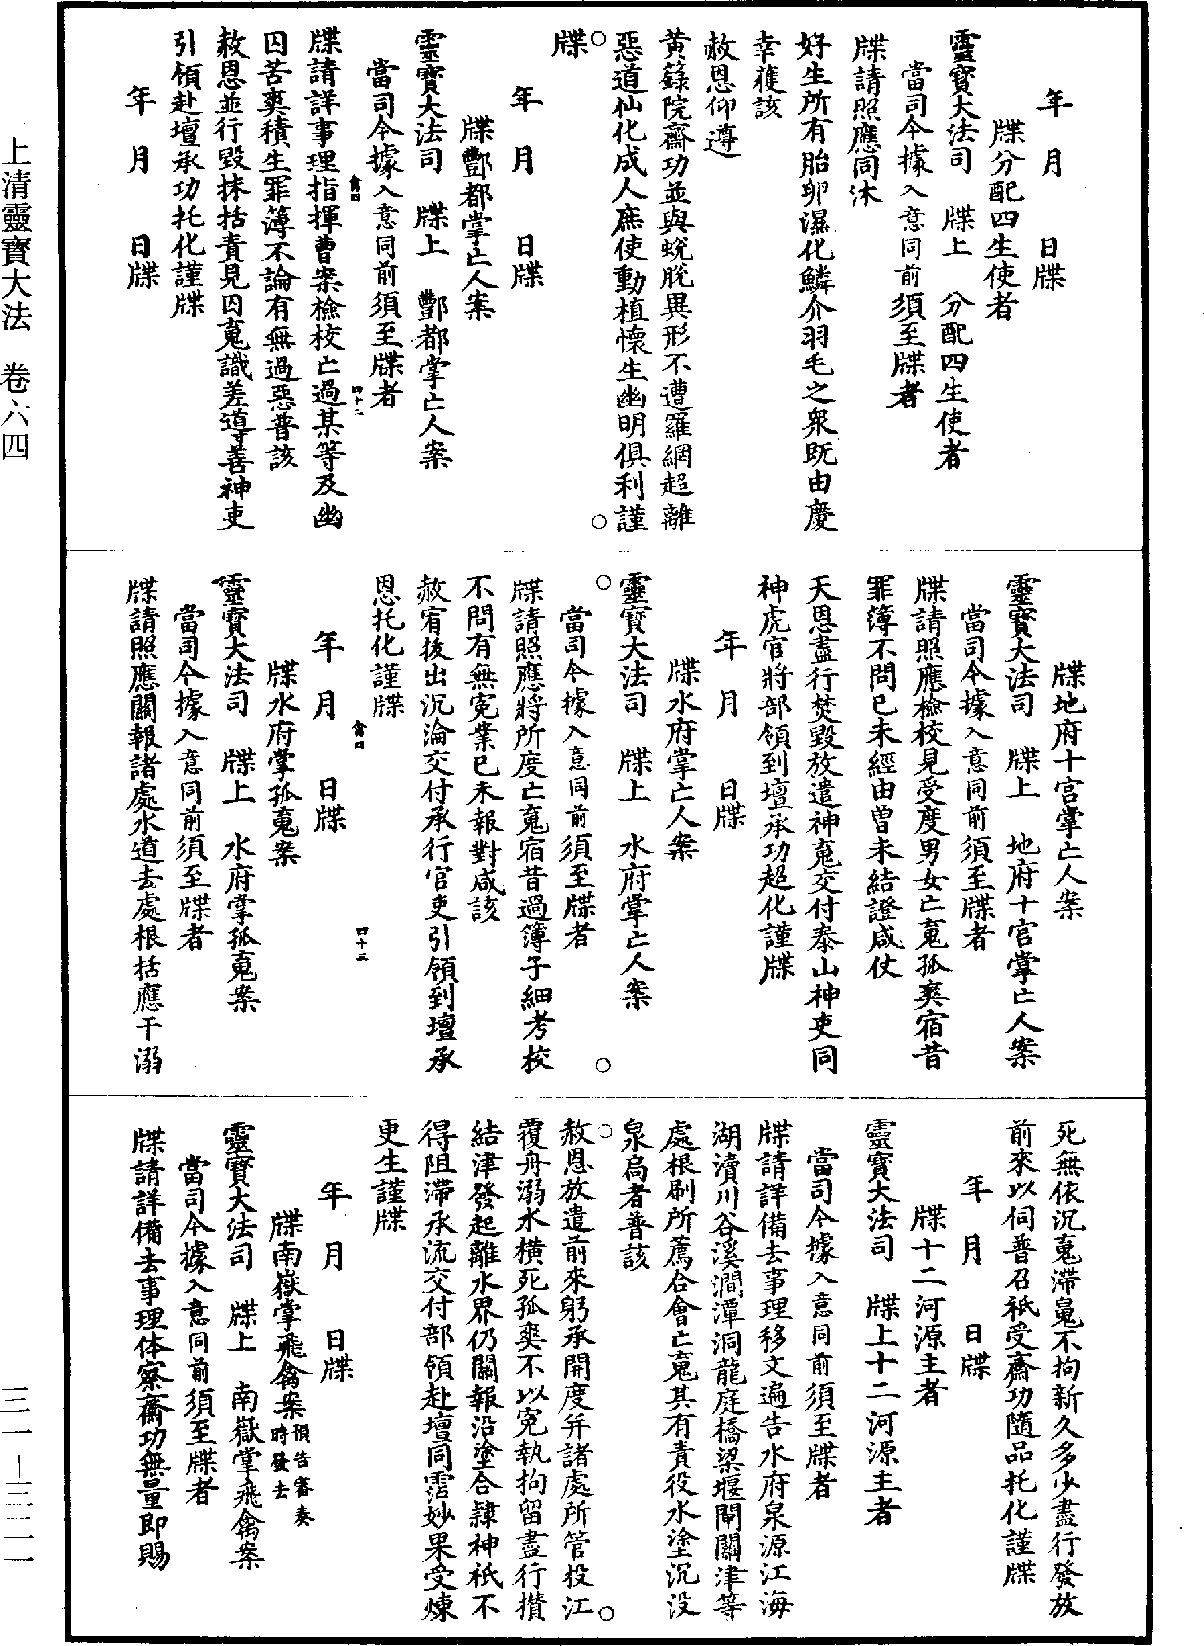 年　月　　日牒
牒分配四生使者
靈寶大法司　牒上　分配四生使者
當司今據入意同前須至牒者
牒請照應同沐
好生所有胎卵濕化鱗介羽毛之衆既由慶
幸獲該
赦恩仰遵
黃籙院齋功並與蛻脫異形不遭羅網超離
惡道仙化成人庶使動植懷生幽明俱利謹
牒
年　月　　日牒
牒酆都掌亡人案
靈寶大法司　牒上　酆都掌亡人案
當司今據入意同前須至牒者
牒請詳事理指揮曹案檢校亡過某等及幽
囚苦爽積生罪簿不論有無過惡普該
赦恩並行毀抹括責見囚䰟識差導善神吏
引領赴壇承功托化謹牒
年　月　　日牒
牒地府十宮掌亡人案
靈寶大法司　牒上　地府十宮掌亡人案
當司今據入意同前須至牒者
牒請照應檢校見受度男女亡䰟孤爽宿昔
罪簿不問已未經由曾未結證咸仗
天恩盡行焚毀放遣神䰟交付泰山神吏同
神虎官將部領到壇承功超化謹牒
年　月　　日牒
牒水府掌亡人案
靈寶大法司　牒上　水府掌亡人案
當司今據入意同前須至牒者
牒請照應將所度亡䰟宿昔過簿子細考校
不問有無冤業已未報對咸該
赦宥拔出沉淪交付承行官吏引領到壇承
恩托化謹牒
年　月　　日牒
牒水府掌孤䰟案
靈寶大法司　牒上　水府掌孤䰟案
當司今據入意同前須至牒者
牒請照應關報諸處水道去處根括應干溺
死無依沉䰟滯魄不拘新久多少盡行發放
前來以伺普召祇受齋功隨品托化謹牒
年　月　　日牒
牒十二河源主者
靈寶大法司　牒上十二河源主者
當司今據入意同前須至牒者
牒請詳備去事理移文遍告水府泉源江海
湖瀆川谷溪澗潭洞龍庭橋梁堰閘關津等
處根刷所薦合會亡䰟其有責役水塗沉沒
泉扃者普該
赦恩放遣前來躬承開度并諸處所管投江
覆舟溺水橫死孤爽不以冤執拘留盡行攢
結津發起離水界仍關報沿塗合隸神祇不
得阻滯承流交付部領赴壇同霑妙果受煉
更生謹牒
年　月　　日牒
牒南嶽掌飛禽案預告審奏時發去
靈寶大法司　牒上　南嶽掌飛禽案
當司今據入意同前須至牒者
牒請詳備去事理体察齋功無量即賜
上清靈寶大法　卷六四
三一—三二一